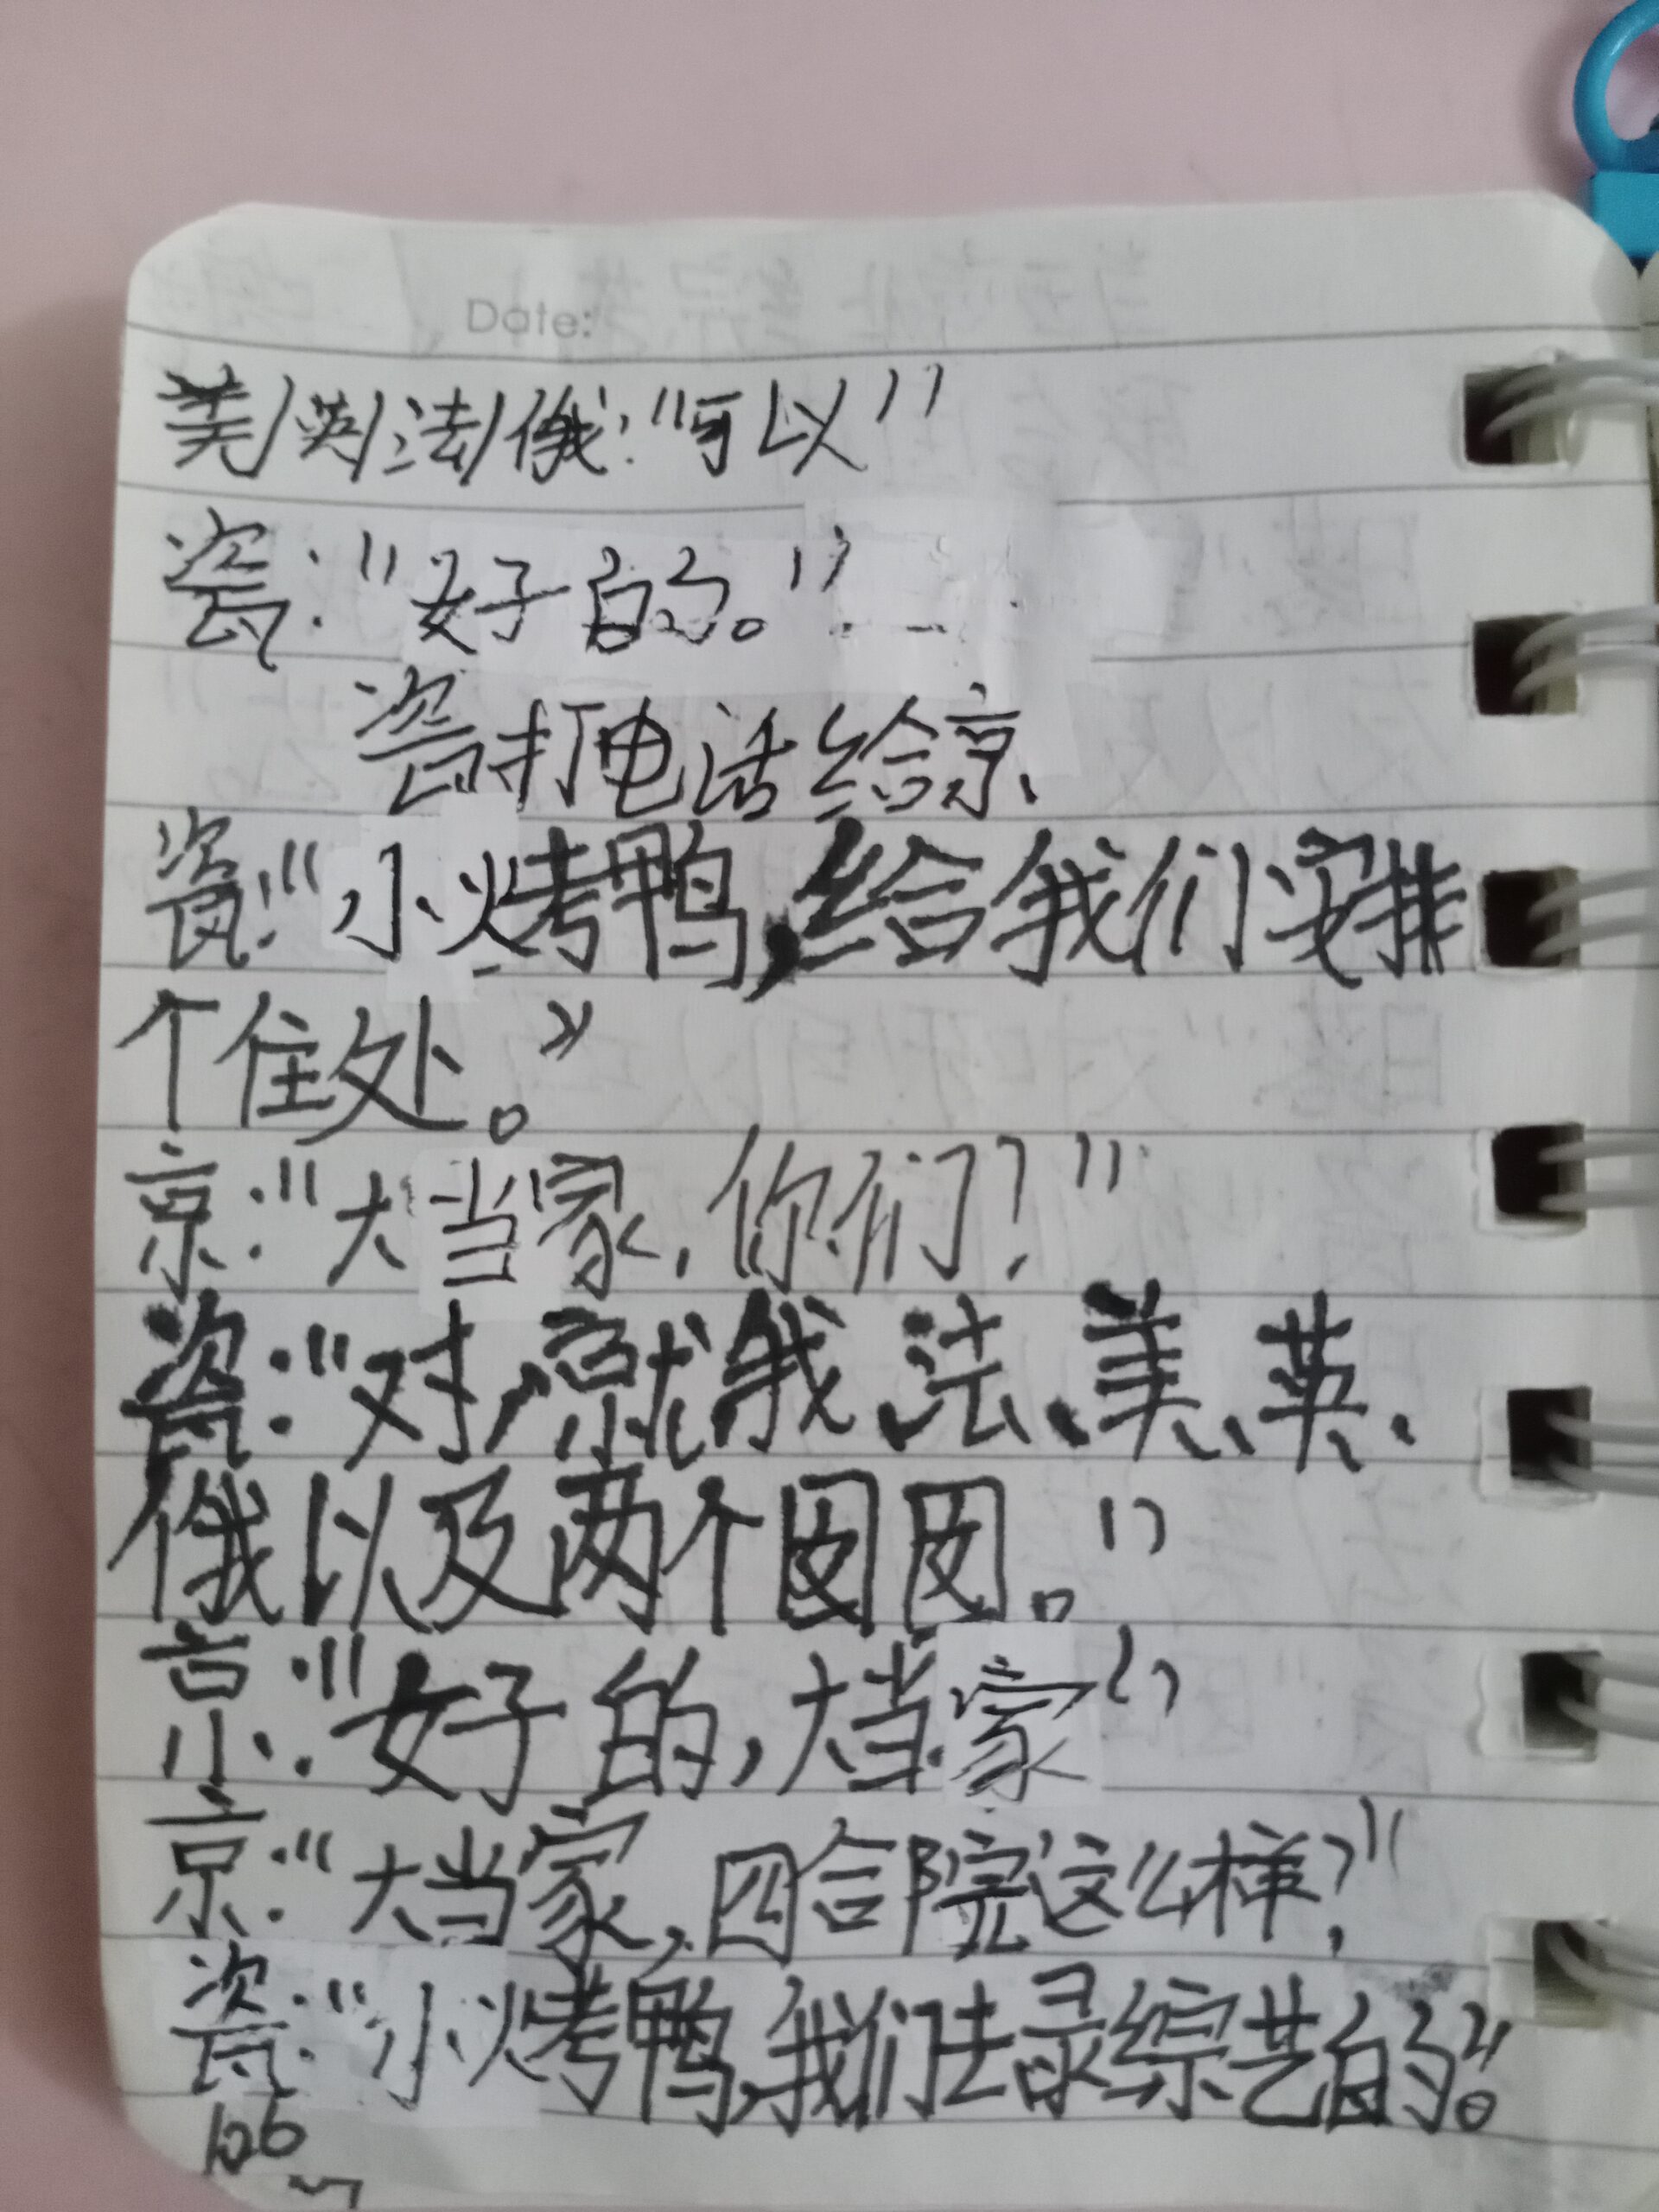 Date:
美/英/法/俄:“可以”
瓷:“好的。”
瓷打电话给京
瓷:“小烤鸭,给我们安排
个住处。”
京:“大当家,你们?”
瓷:“对,就我、法、美、英、
俄以及两个图图。”
京:“好的,大当家”
京:“大当家,四合院这么样?”
瓷:“小烤鸭,我们去录综艺的。”
106